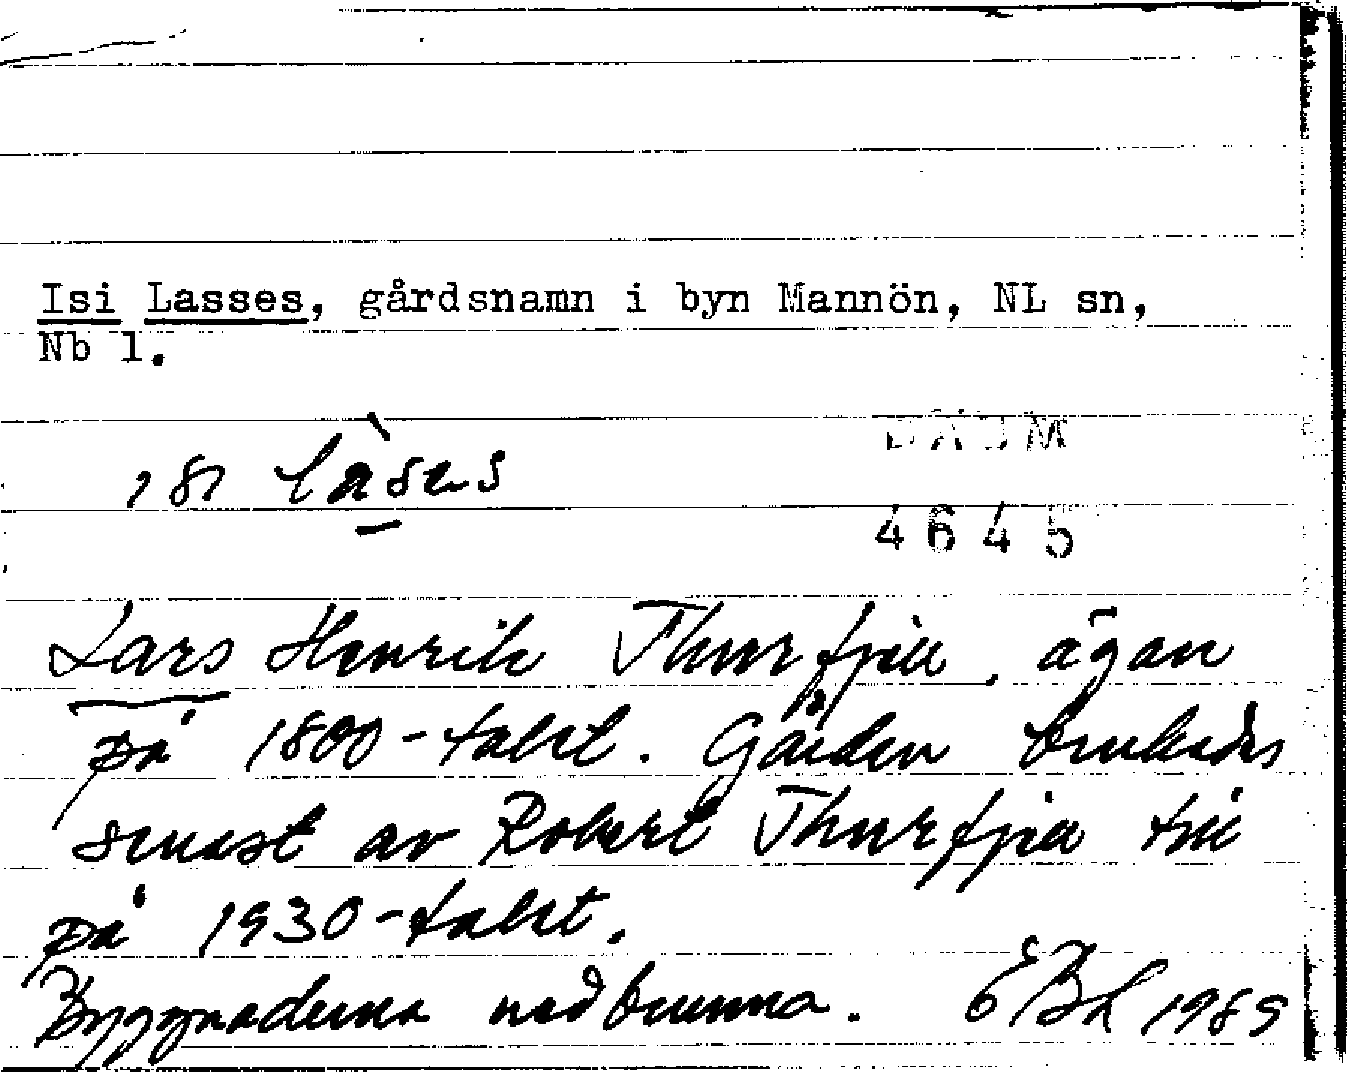 Isi Lasses, gårdsnamn i byn Mannön, NL sn,
Nb l.
ısı
DAUM
4645
Lars Henrik Thurfjell, ägare
på 1800-talet. Gården brukades
senast av Robert Thurfjell till
på 1930-talet.
Byggnaderna nedbrunna. 1989